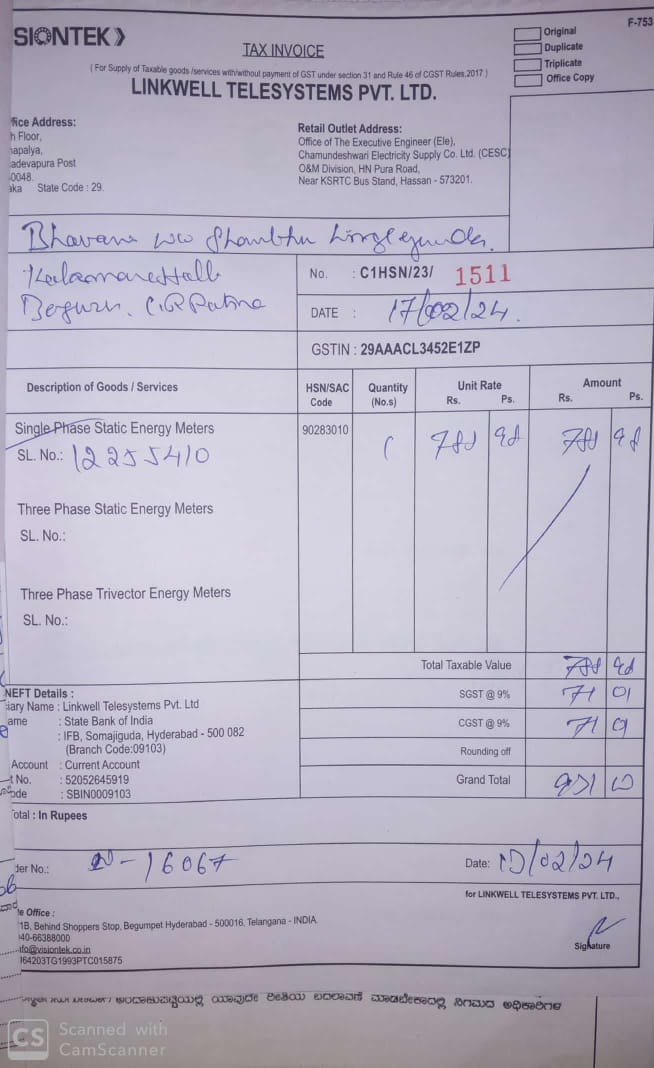 F-753
SIONTEK
TAX INVOICE
Original
Duplicate
Triplicate
Office Copy
( For Supply of Taxable goods /services with/without payment of GST under section 31 and Rule 46 of CGST Rules,2017 )
LINKWELL TELESYSTEMS PVT. LTD.
fice Address:
h Floor,
apalya,
adevapura Post
0048.
aka State Code : 29.
Retail Outlet Address:
Office of The Executive Engineer (Ele),
Chamundeshwari Electricity Supply Co. Ltd. (CESC)
O&M Division, HN Pura Road,
Near KSRTC Bus Stand, Hassan - 573201.
Bhavani w/o
No. : C1HSN/23/ 1511
DATE : 17/02/24.
GSTIN : 29AAACL3452E1ZP
Description of Goods / Services HSN/SAC Code Quantity (No.s) Unit Rate Rs. Ps. Amount Rs. Ps.
Single Phase Static Energy Meters 90283010
SL. No.: 12255410
Three Phase Static Energy Meters
SL. No.:
Three Phase Trivector Energy Meters
SL. No.:
Total Taxable Value
SGST @ 9% 71 01
CGST @ 9% 71
Rounding off
Grand Total
NEFT Details :
iary Name : Linkwell Telesystems Pvt. Ltd
ame : State Bank of India
: IFB, Somajiguda, Hyderabad - 500 082
(Branch Code:09103)
Account : Current Account
t No. : 52052645919
ode : SBIN0009103
otal : In Rupees
der No.: 16067
Date: /02/24
for LINKWELL TELESYSTEMS PVT. LTD.,
e Office :
1B, Behind Shoppers Stop, Begumpet Hyderabad - 500016, Telangana - INDIA.
040-66388000
nfo@visiontek.co.in
I64203TG1993PTC015875
Signature
ಯಾವುದೇ ರೀತಿಯ ಬದಲಾವಣೆ ಮಾಡಬೇಕಾದಲ್ಲಿ ನಿಗಮದ ಅಧಿಕಾರಿಗಳ
CS Scanned with
CamScanner